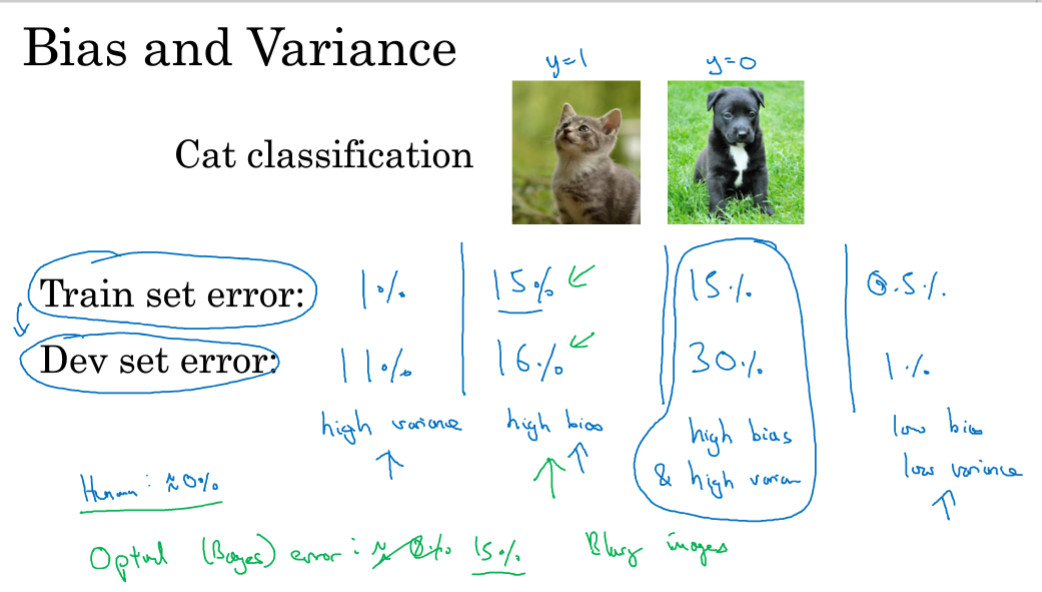 Bias and Variance
y=1 y=0
Cat classification
Train set error: 1% 15% 15% 0.5%
Dev set error: 11% 16% 30% 1%
high variance high bias high bias low bias
& high varian low variance
Human: ≈0%
Optimal (Bayes) error: ≈ 0% 15% Blurry images